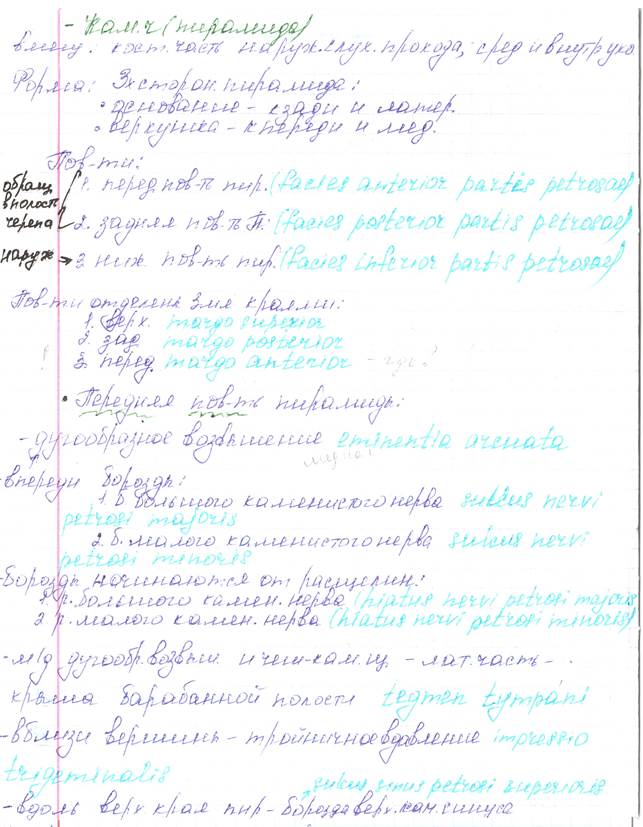 - Кам.ч (пирамида)
вмещ. кост. часть наруж. слух. прохода, сред и внутр ухо
Форма: 3хсторон. пирамида:
• основание - кзади и латер.
• верхушка - кпереди и мед.
Пов-ти:
обращ в полость черепа
1. перед пов-ть пир. (facies anterior partis petrosae)
2. задняя пов-ть п. (facies posterior partis petrosae)
наруж → 3 ниж. пов-ть пир. (facies inferior partis petrosae)
Пов-ти отделены 3мя краями:
1. верх. margo superior
2. зад margo posterior
! 3. перед. margo anterior - где?
• Передняя пов-ть пирамиды:
- дугообразное возвышение eminentia arcuata
- впереди борозды:
1. б большого каменистого нерва sulcus nervi
petrosi majoris
2. б. малого каменистого нерва sulcus nervi
petrosi minoris
- Борозды начинаются от расщелин:
1. р. большого камен. нерва (hiatus nervi petrosi majoris
2 р. малого камен. нерва (hiatus nervi petrosi minoris)
- м/д дугообр. возвыш и чеш-кам. щ - лат. часть -
крыша барабанной полости tegmen tympani
- вблизи вершины - тройничное вдавление impressio
trigeminalis
sulcus sinus petrosi superioris
- вдоль верх края пир - борозда верх. кам. синуса